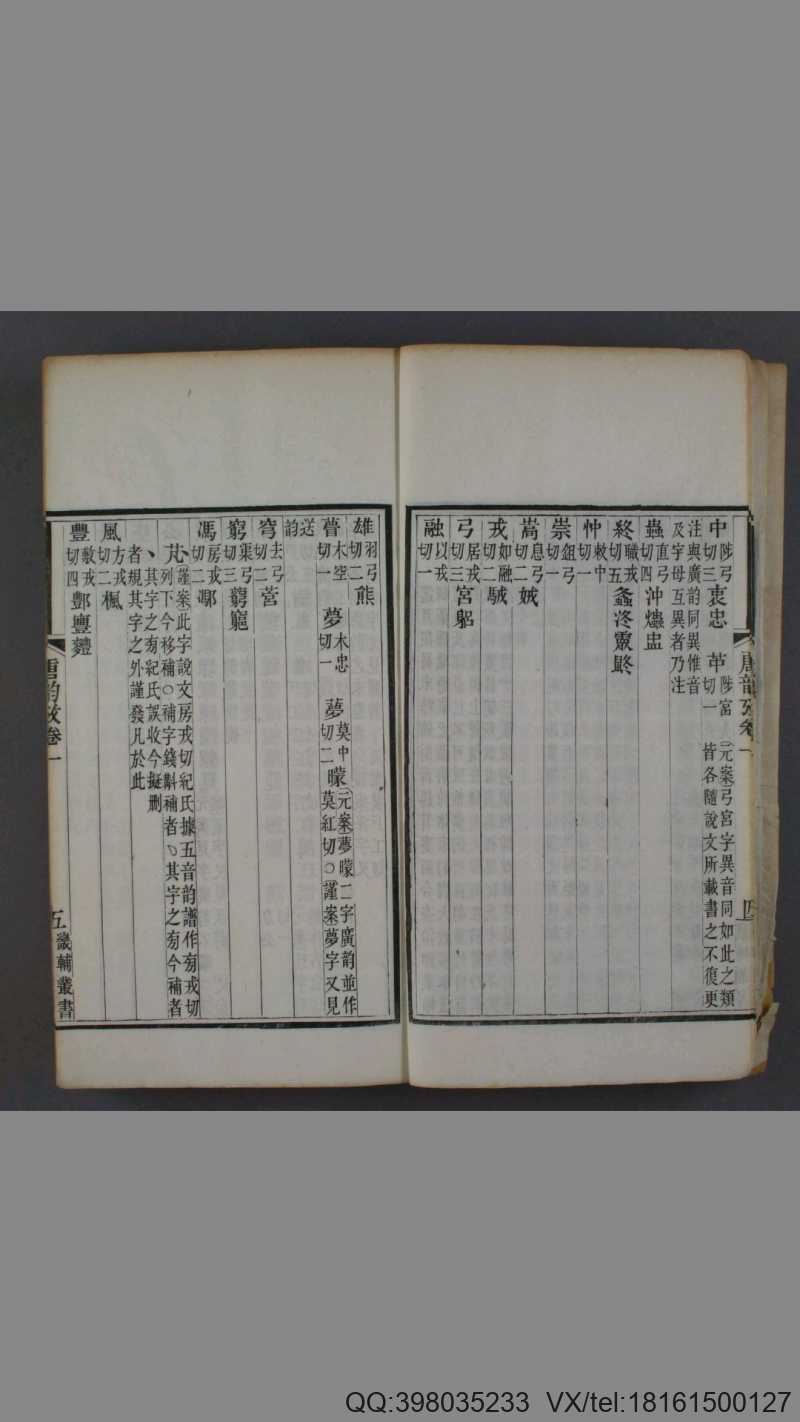 唐韵攷卷一
四
中陟弓切三衷忠 苹陟富切一 元案弓宮字異音同如此之類皆各隨說文所載書之不復更
注與廣韵同異惟音及字母互異者乃注
蟲直弓切四沖爞盅
終職戎切五螽泈霥䶱
忡敕中切一
崇鉏弓切一
嵩息弓切二娀
戎如融切二駥
弓居戎切三宮躳
融以戎切一
雄羽弓切二熊
瞢木空切一 夢木忠切一 夢莫中切二矇 元案夢矇二字廣韵並作莫紅切○謹案夢字又見
送韵
穹去弓切二营
窮渠弓切三藭竆
馮房戎切二渢
芃謹案此字說文房戎切紀氏據五音韵譜作房戎切列下今移補○補字錢斠補者其字之旁今補者
丶其字之旁紀氏誤收今擬删者規其字之外謹發凡於此
風方戎切二楓
豐敷戎切四酆寷麷
唐韵攷卷一
五
畿輔叢書
QQ:398035233 VX/tel:18161500127